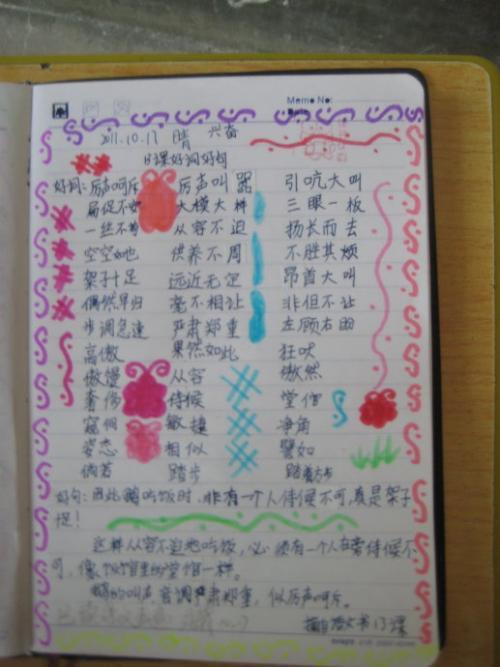 Memo No:
2011.10.17 晴 兴奋
13课好词好句
好词:厉声呵斥 厉声叫嚣 引吭大叫
局促不安 大模大样 三眼一板
一丝不苟 从容不迫 扬长而去
空空如也 供养不周 不胜其烦
架子十足 远近无定 昂首大叫
偶然早归 毫不相让 非但不让
步调急速 严肃郑重 左顾右盼
高傲 果然如此 狂吠
傲慢 从容 傲然
奢侈 侍候 堂倌
窥伺 敏捷 净角
姿态 相似 譬如
倘若 踏步 踏着方步
好句:因此鹅吃饭时,非有一个人侍候不可,真是架子
足!
这样从容不迫地吃饭,必须有一个人在旁侍候不
可,像饭馆里的堂倌一样。
鹅的叫声音调严肃郑重,似厉声呵斥。
摘自语文书13课